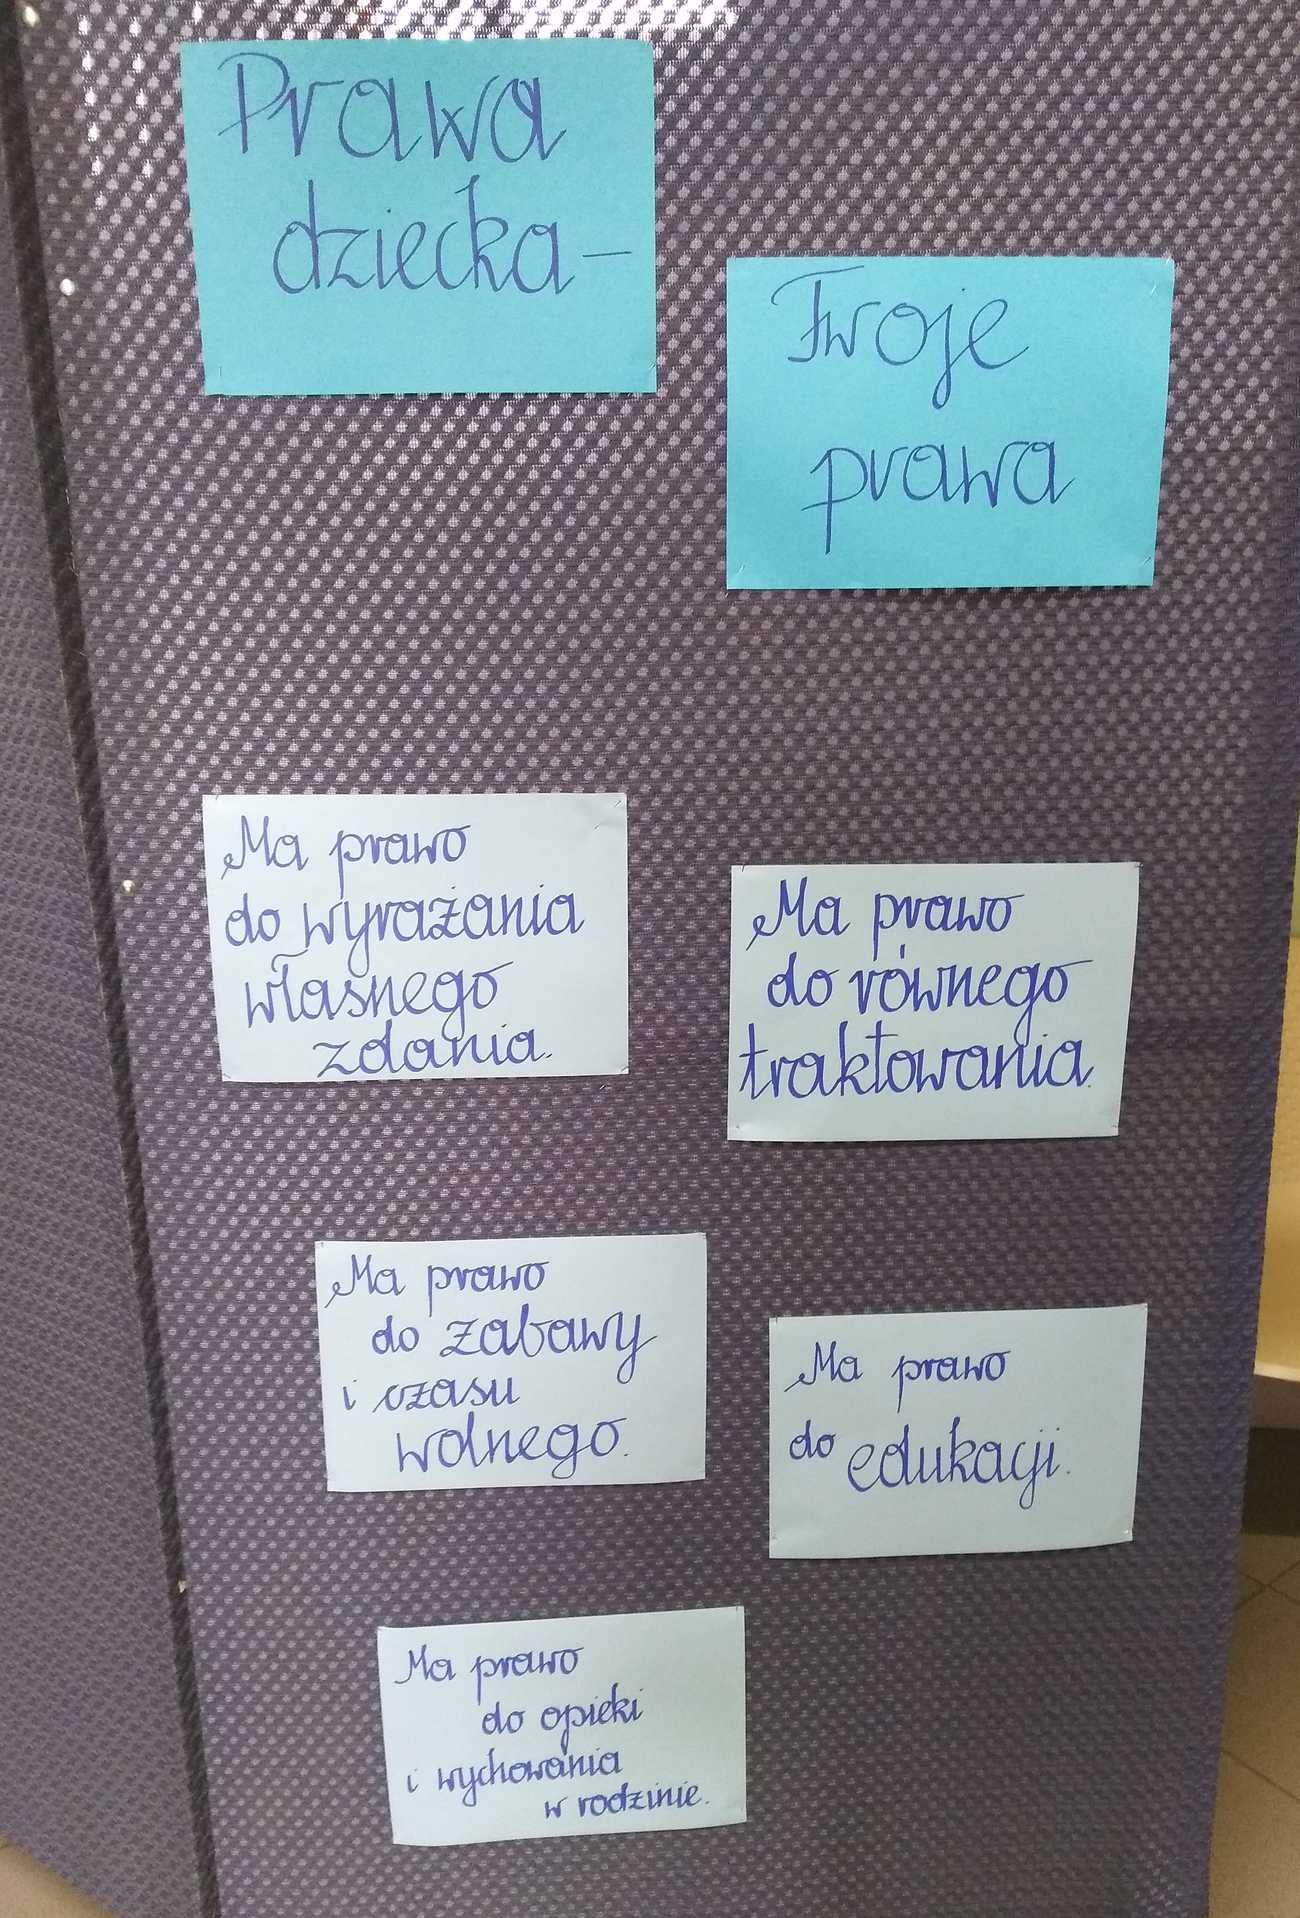 Prawa
dziecka-
Twoje
prawa
Ma prawo
do wyrażania
własnego
zdania.
Ma prawo
do równego
traktowania.
Ma prawo
do zabawy
i czasu
wolnego.
Ma prawo
do edukacji.
Ma prawo
do opieki
i wychowania
w rodzinie.